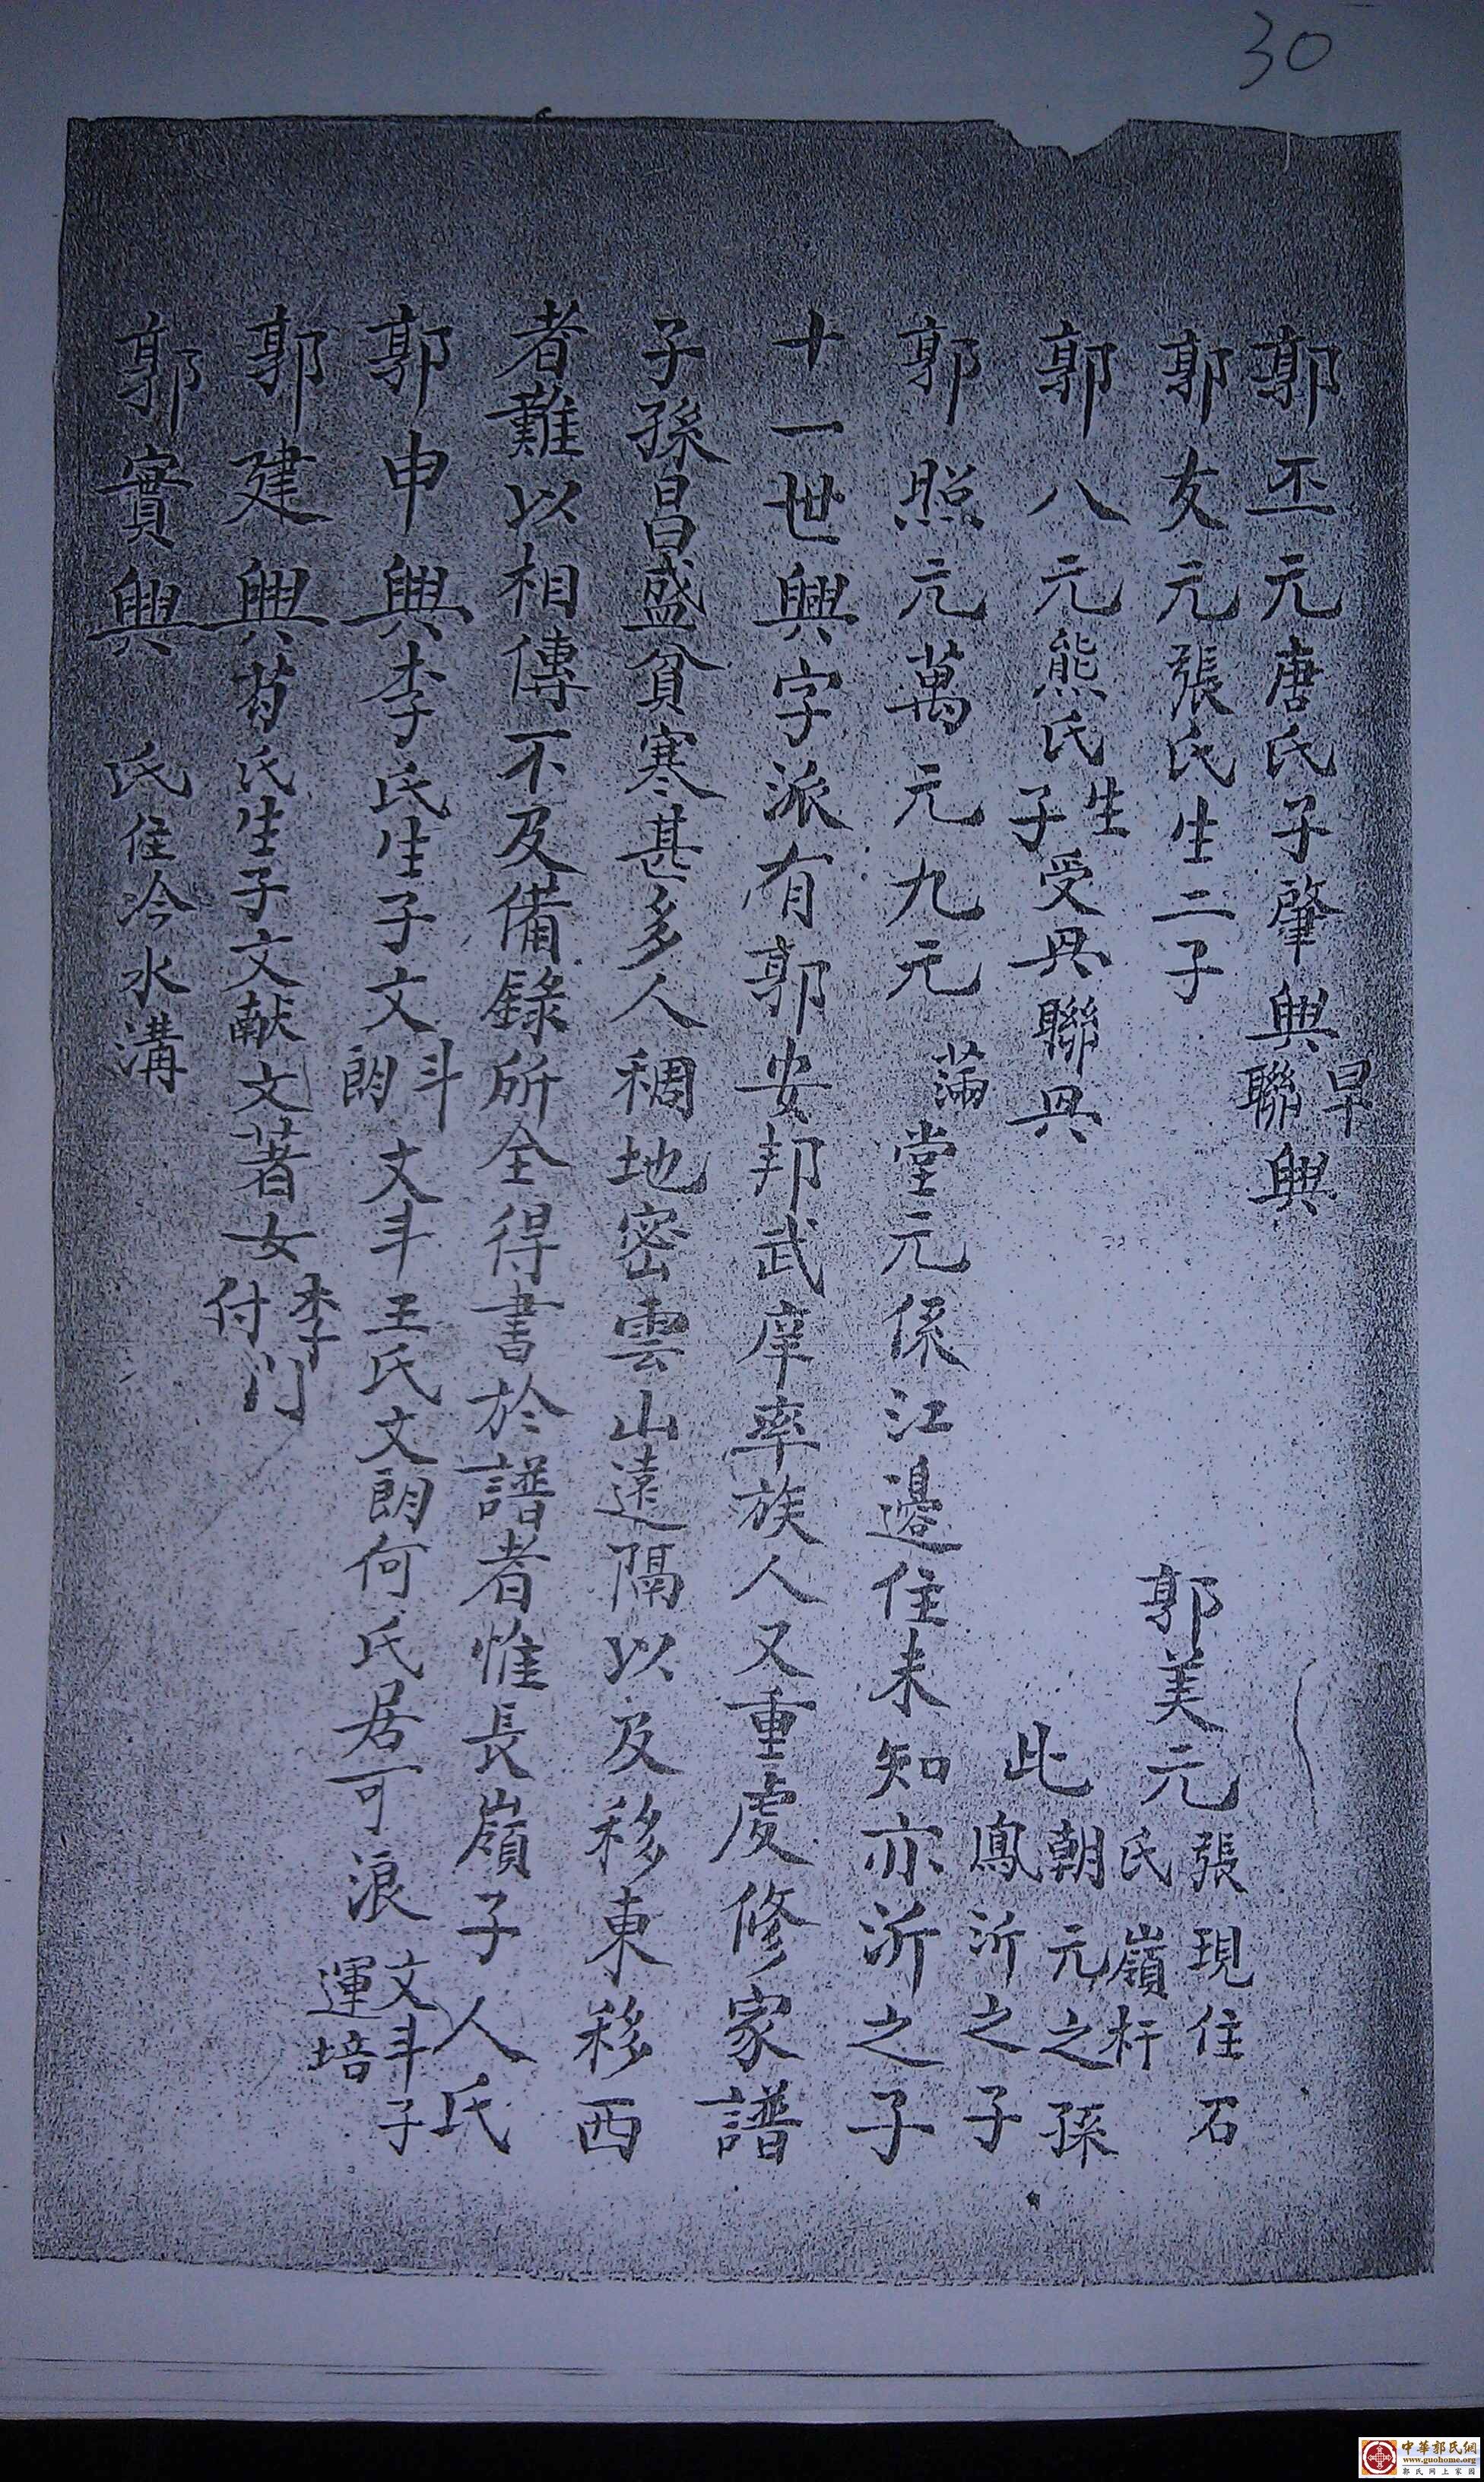 30
郭丕元唐氏子肇興聯興
早
郭友元張氏生二子
郭美元張氏現住石嶺杆
郭八元熊氏生子受興聯興
此朝元之孫
鳳沂之子
郭照元萬元九元滿堂元係江邊住未知亦沂之子
十一世興字派有郭安邦武庠率族人又重處修家譜
子孫昌盛貧寒甚多人稠地密雲山遠隔以及移東移西
者難以相傳不及備錄所全得書於譜者惟長嶺子人氏
郭申興李氏生子文斗文朗文斗王氏文朗何氏居可浪
文斗子
運培
郭建興苟氏生子文献文著女李付门
郭實興 氏住冷水溝
中華郭氏網
www.guohome.org
郭氏网上家园